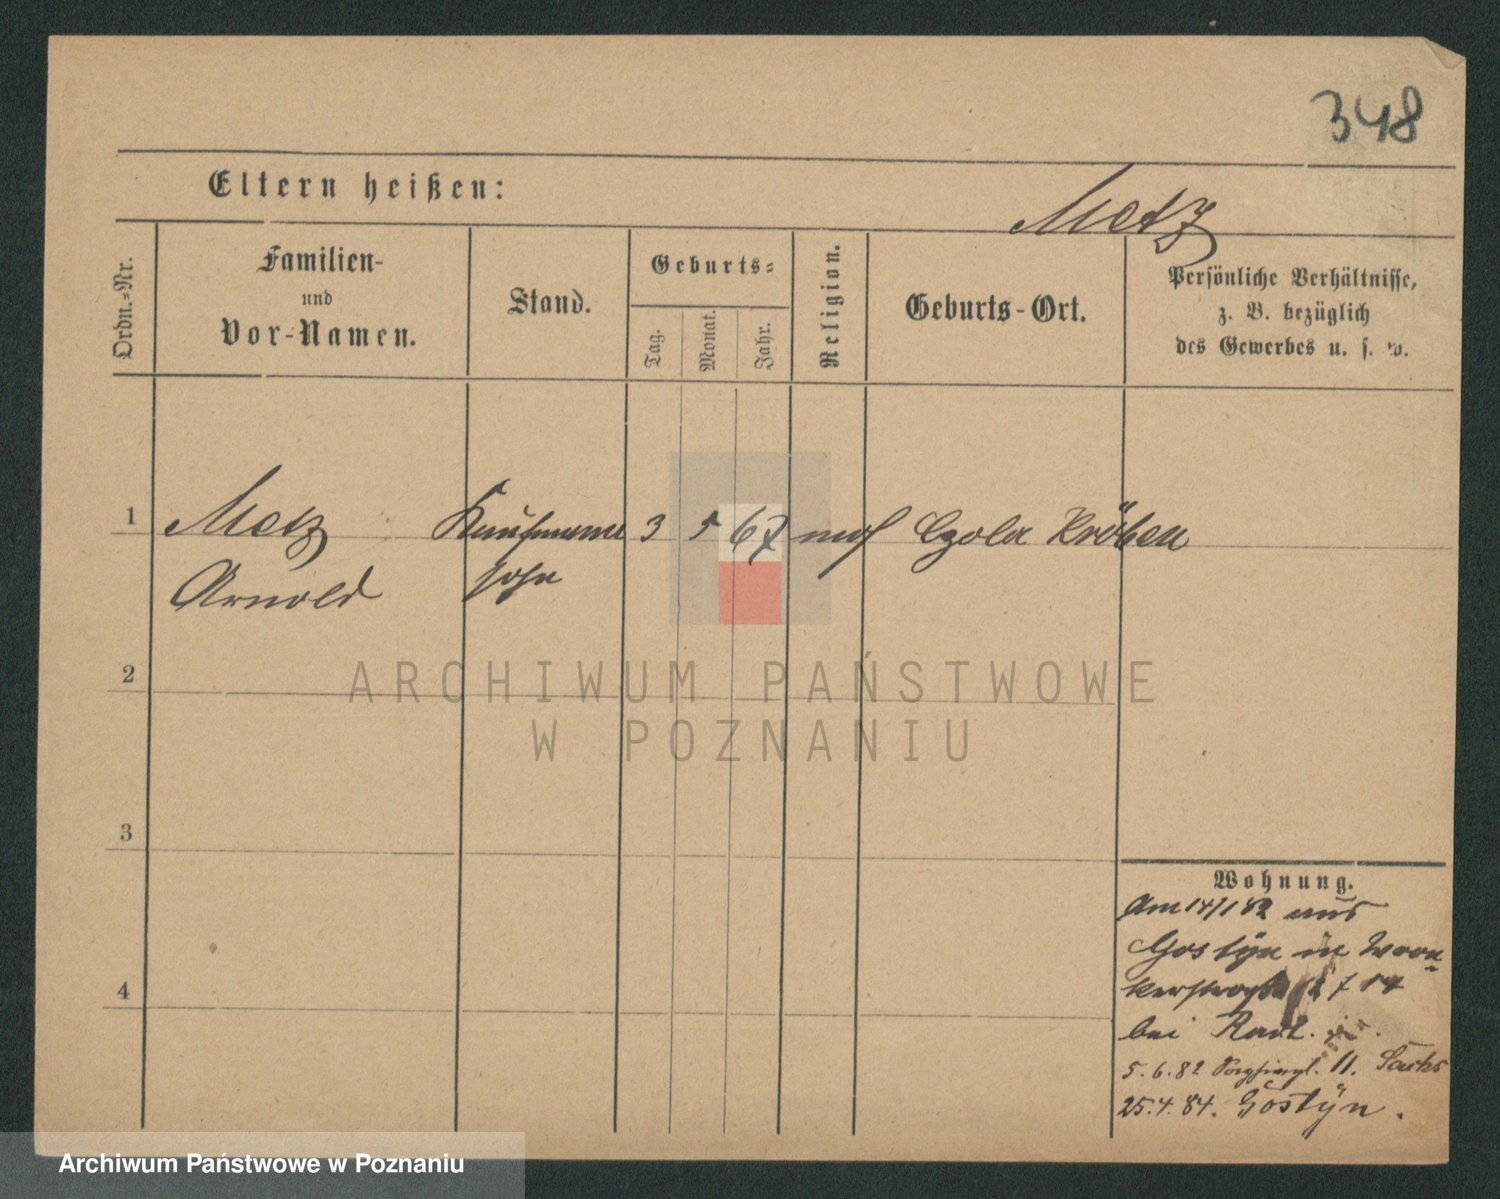 348
Eltern heißen:
Metz
Ordn.-Nr.
Familien-
und
Vor-Namen.
Stand.
Geburts-
Tag.
Monat.
Jahr.
Religion.
Geburts-Ort.
Persönliche Verhältnisse,
z. B. bezüglich
des Gewerbes u. s. w.
1 Metz Kaufmanns 3 5 67 mos Czola Kröben
Arnold sohn
2
ARCHIWUM PAŃSTWOWE
W POZNANIU
3
4
Wohnung.
Am 14/1 82 aus
Gostÿn in Wron-
kerstraße 17
bei Radt.
5.6.82 11. Sachs
25.4.84. Gostÿn.
Archiwum Państwowe w Poznaniu